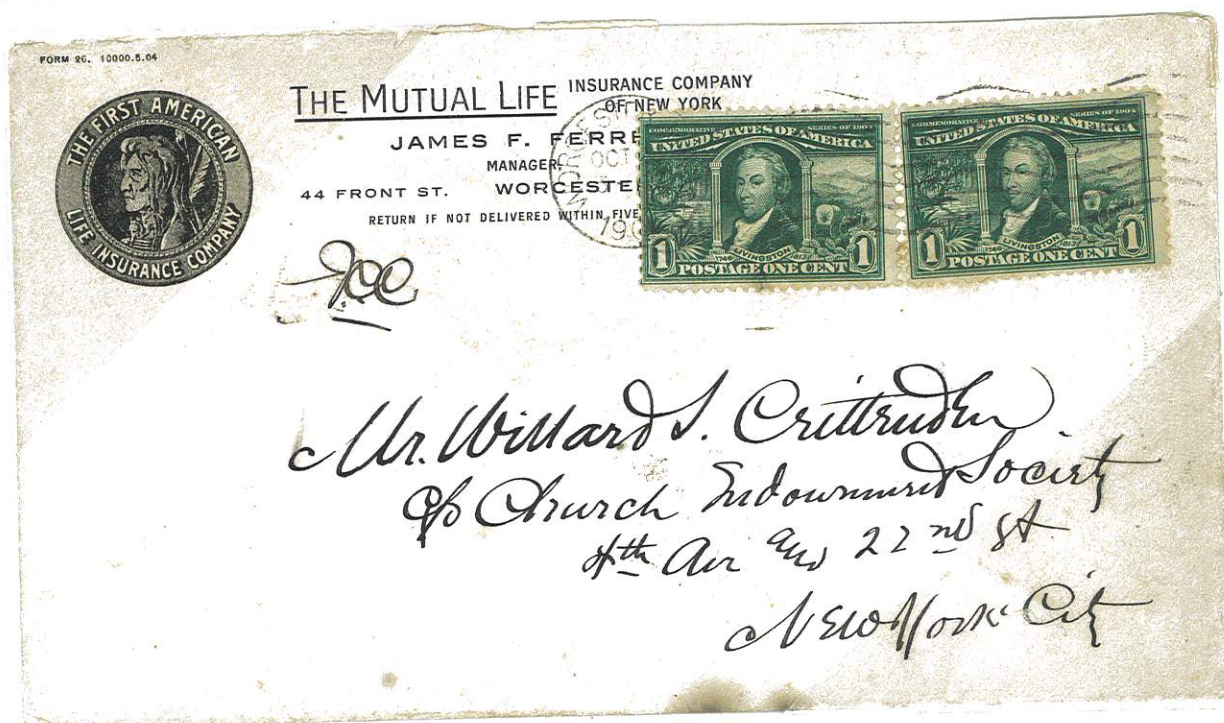 FORM 26. 10000.5.04
THE FIRST AMERICAN
LIFE INSURANCE COMPANY
THE MUTUAL LIFE INSURANCE COMPANY
OF NEW YORK
JAMES F. FERRE
MANAGER
44 FRONT ST. WORCESTE
RETURN IF NOT DELIVERED WITHIN FIVE
WORCEST
OCT
190
COMMEMORATIVE SERIES OF 1904
UNITED STATES OF AMERICA
1748 LIVINGSTON 1813
1 POSTAGE ONE CENT 1
COMMEMORATIVE SERIES OF 1904
UNITED STATES OF AMERICA
1746 LIVINGSTON 1813
1 POSTAGE ONE CENT 1
Mr. Willard S. Crittenden
c/o Church Endowment Society
4th Ave and 22nd St
New York City